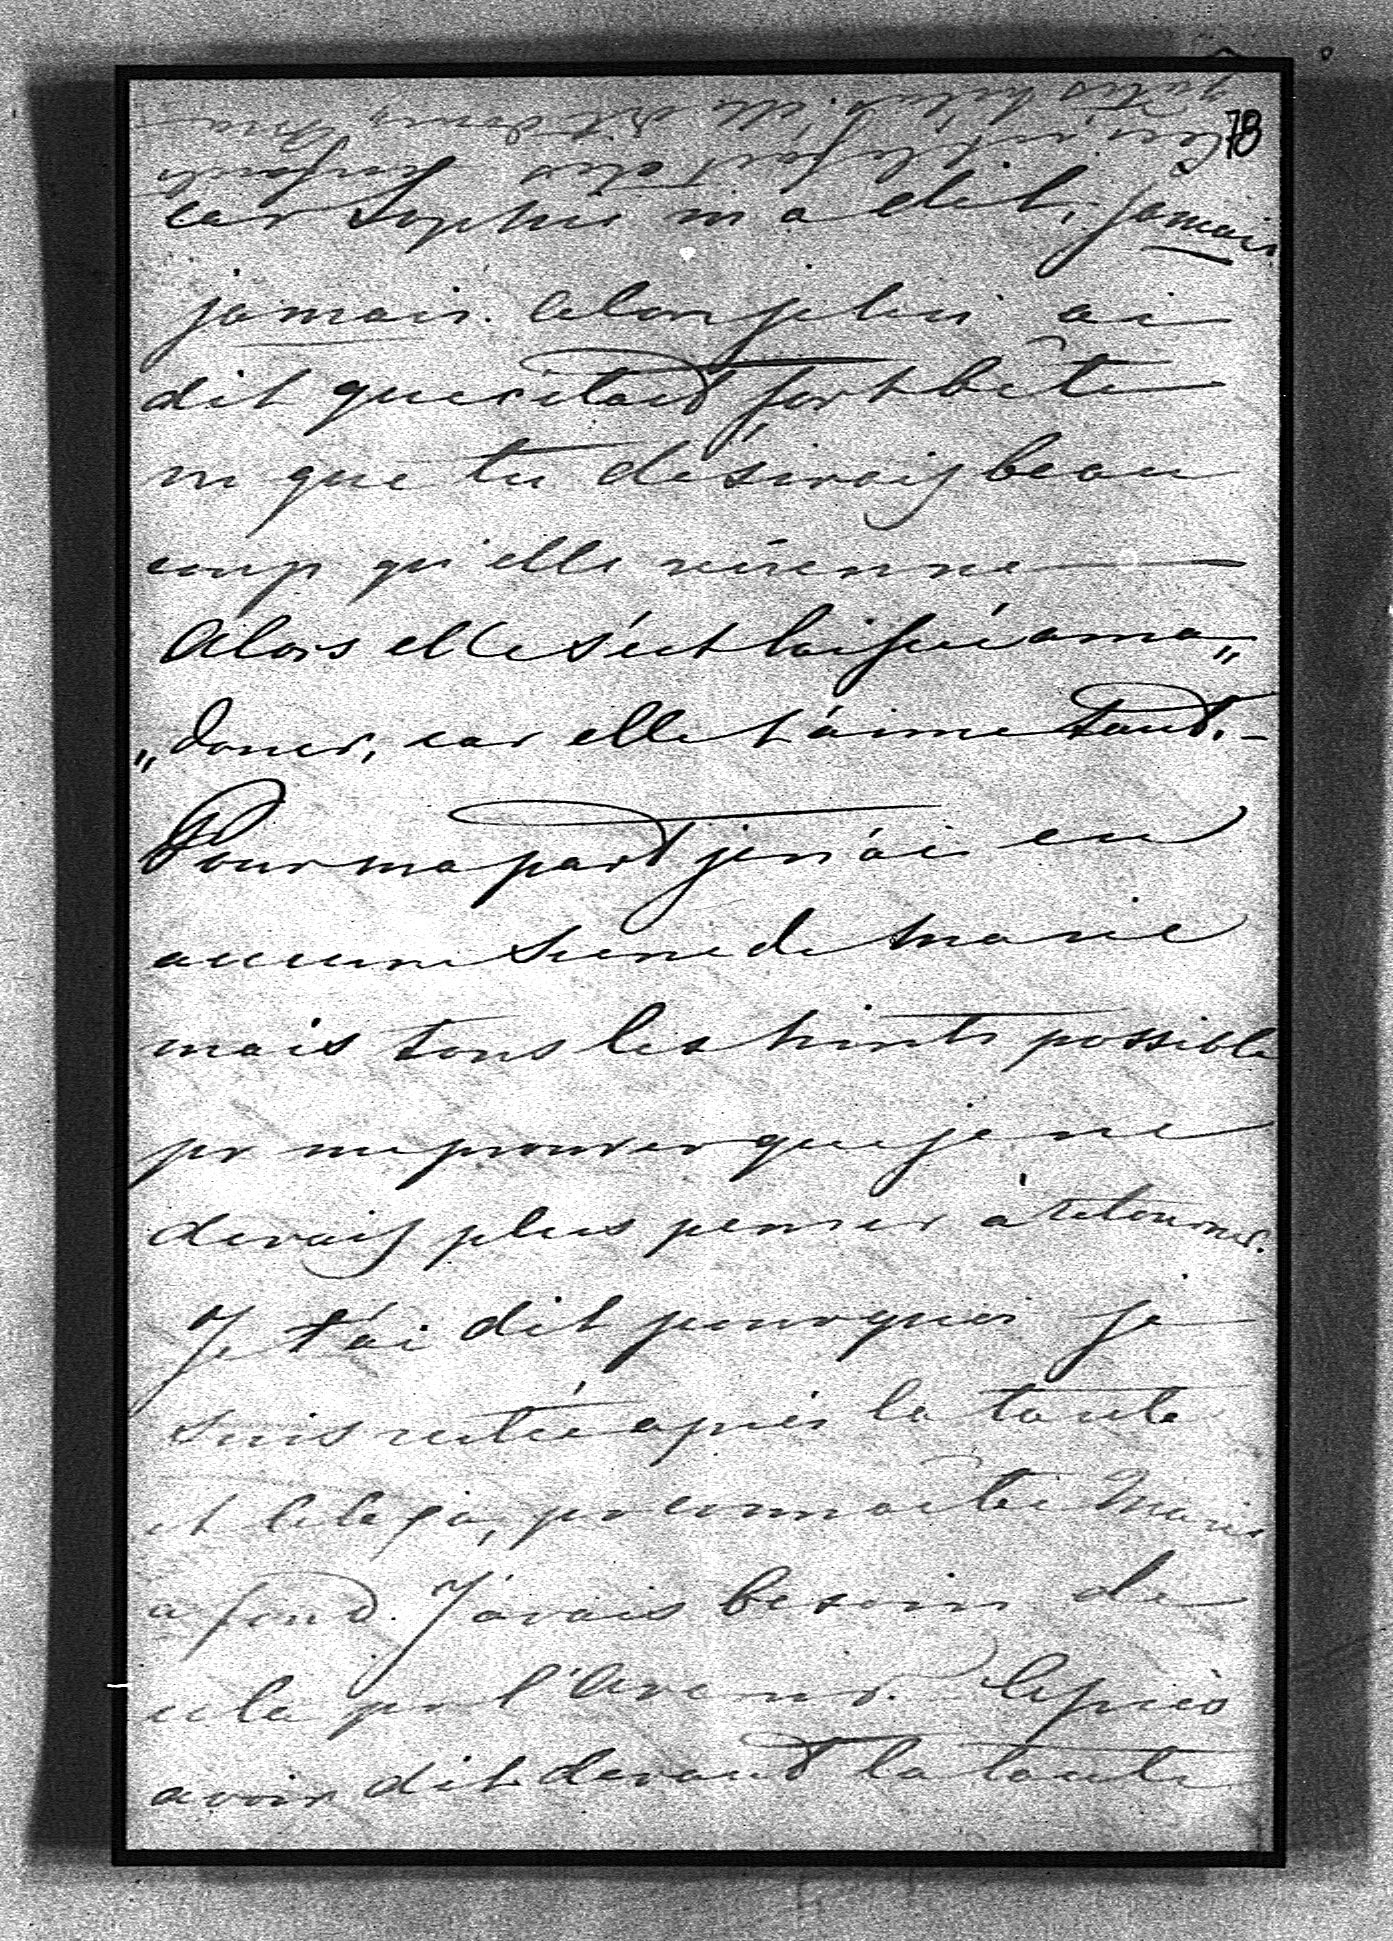 78
car Sophie m'a dit, jamais
jamais. Alors je lui ai
dit que c'etait fort bête
ni que tu désirais beau
coup qu'elle revienne
Alors elle s'est laissée ama„
„douer, car elle t'aime tant. –
Pour ma part je n'ai eu
aucune scene de Marie
mais tous les hints possible
pr me prouver que je ne
devais plus penser à retourner.
Je t'ai dit pourquoi je
suis restée après la tante
et tout ça, pr connaître Marie
a fond. J'avais besoin de
cela pr l'avenir. Après
avoir dit devant la tante